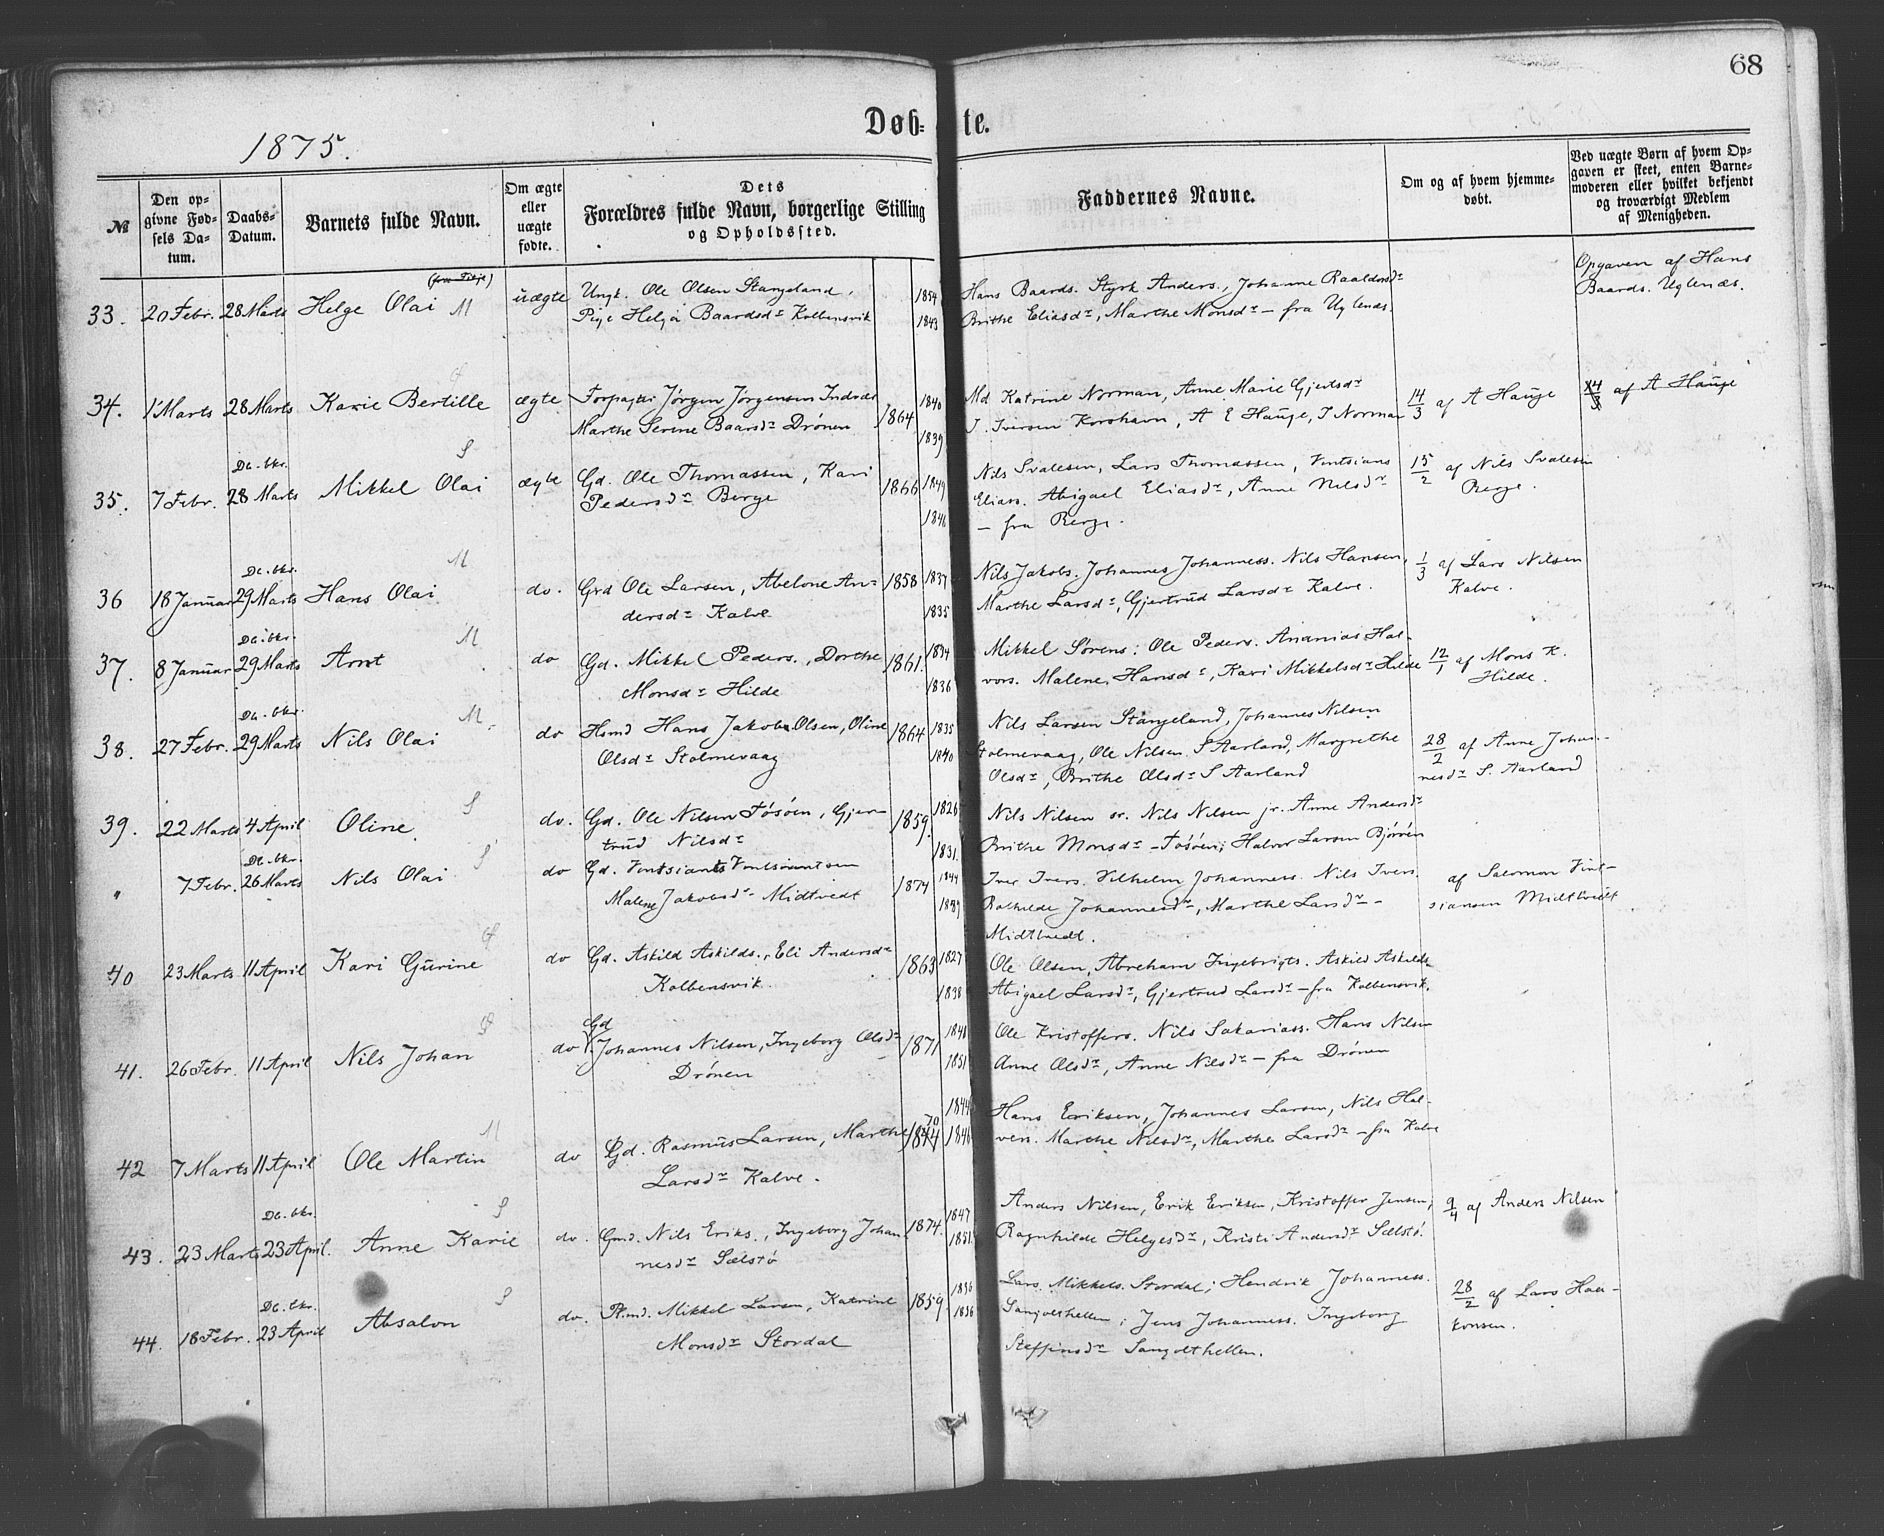 68
Døb-te.
1875.
№
Den opgivne Fødsels Datum.
Daabs-Datum.
Barnets fulde Navn.
Om ægte eller uægte fødte.
Dets Forældres fulde Navn, borgerlige Stilling og Opholdssted.
Faddernes Navne.
Om og af hvem hjemmedøbt.
Ved uægte Børn af hvem Opgaven er skeet, enten Barnemoderen eller hvilket bekjendt og troværdigt Medlem af Menigheden.
33. 20 Febr. 28 Marts Helge Olai M uægte Ungk. Ole Olsen Stangeland, 1854 Hans Baards. Styrk Anders., Johanne Raaldsdr Opgaven af Hans
Pige Helga Baardsdr Kolbensvik 1843 Brithe Eliasdr, Marthe Monsdr - fra Uglenæs. Baards. Uglenæs.
34. 1 Marts 28 Marts Karie Bertille ægte Forpagter Jørgen Jørgensen Indvær 1864 1840 Md Katrine Norman, Anne Marie Gjertsdr 14/3 af A Hauge 14/3 af A Hauge
Marthe Serine Baarsdr Drönen 1839 J. Iversen Korshavn, A E Hauge, J Norman
35. 7 Febr. Db. bkr. 28 Marts Mikkel Olai S ægte Gd. Ole Thomassen, Kari 1866 1849 Nils Svalesen, Lars Thomassen, Vintsians 15/2 af Nils Svalesen
Pedersdr Berge 1846 Elias. Abigael Eliasdr, Anne Nilsdr Berge.
- fra Berge.
36 18 Januar Db. bkr. 29 Marts Hans Olai M do. Grd Ole Larsen, Abelone An- 1858 1837 Nils Jakobs. Johannes Johanness. Nils Hansen, 1/3 af Lars Nilsen
dersdr Kalve 1835 Marthe Larsdr, Gjertrud Larsdr Kalve. Kalve.
37. 8 Januar Db. bkr. 29 Marts Arnt M do Gd. Mikkel Peders., Dorthe 1861. 1834 Mikkel Sörens. Ole Peders. Ananias Hal- 12/1 af Mons K.
Monsdr Hilde 1836 vors. Malene Hansdr, Kari Mikkelsdr Hilde Hilde.
38. 27 Febr. Db. bkr. 29 Marts Nils Olai M. do Hsmd Hans Jakob Olsen, Oline 1864 1835 Nils Larsen Stangeland, Johannes Nilsen
Olsdr Stolmevaag 1840 Stolmevaag, Ole Nilsen S Aarland, Margrethe 28/2 af Anne Johan-
Olsdr, Brithe Olsdr S Aarland nesdr S. Aarland
39. 22 Marts 4 April Oline S do. Gd. Ole Nilsen Fösöen, Gjer- 1859. 1826 Nils Nilsen sr. Nils Nilsen jr. Anne Andersdr
trud Nilsdr 1831. Brithe Monsdr - Fösöen; Halvor Larsen Björöen
" 7 Febr. Db. bkr. 26 Marts Nils Olai S do Gd. Vintsiants Vintsiantsen 1874 1844 Iver Ivers. Vilhelm Johanness. Nils Ivers. af Salomon Vint-
Malene Jakobsdr Midtvedt Johannesdr, Marthe Larsdr - siansen Midtvedt
Midtvedt.
40 23 Marts 11 April Kari Gurine do Gd. Askild Askilds., Eli Andersdr 1863 1827 Ole Olsen, Abraham Ingebrigts. Askild Askilds.
Kolbensvik. 1838 Abigael Larsdr, Gjertrud Larsdr - fra Kolbensvik.
41. 26 Febr. 11 April Nils Johan do Gd Johannes Nilsen, Ingeborg Olsdr 1871 1848 Ole Kristoffers. Nils Sakariass. Hans Nilsen
Drönen 1851 Anne Olsdr, Anne Nilsdr - fra Drönen
42 7 Marts 11 April Ole Martin M do Gd. Rasmus Larsen, Marthe 1870 1844 Hans Eriksen, Johannes Larsen, Nils Hal-
Larsdr Kalve. 1846 vors. Marthe Nilsdr, Marthe Larsdr - fra Kalve
43. 23 Marts Db. bkr. 23 April. Anne Karie S do. Gmd. Nils Eriks., Ingeborg Johan 1874. 1847 Anders Nilsen, Erik Eriksen, Kristoffer Jensen, 9/4 af Anders Nilsen
nesdr Sælstö 1851. Ragnhilde Helgesdr, Kristi Andersdr Sælstö.
44. 18 Febr. Db. bkr. 23 April Absalon S do. Plmd. Mikkel Larsen, Katrine 1859. 1836 Lars Mikkels. Stordal; Hendrik Johanness. 28/2 af Lars Haa-
Monsdr Stordal 1836 Sangolthellen; Jens Johanness. Ingeborg konsen.
Steffensdr Sangolthellen.